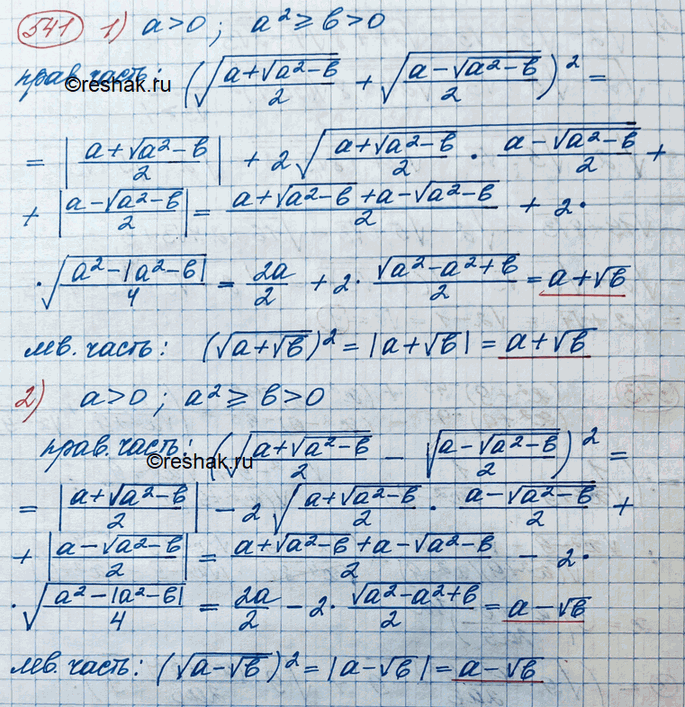 541 1) a>0; a²≥b>0
прав. часть: (√((a+√(a²-b))/2) + √((a-√(a²-b))/2))² =
©reshak.ru
= |(a+√(a²-b))/2| + 2√((a+√(a²-b))/2 · (a-√(a²-b))/2) +
+ |(a-√(a²-b))/2| = (a+√(a²-b)+a-√(a²-b))/2 + 2·
·√((a²-|a²-b|)/4) = 2a/2 + 2· √(a²-a²+b)/2 = a+√b
лев. часть: (√(a+√b))² = |a+√b| = a+√b
2) a>0; a²≥b>0
прав. часть: (√((a+√(a²-b))/2) - √((a-√(a²-b))/2))² =
©reshak.ru
= |(a+√(a²-b))/2| - 2√((a+√(a²-b))/2 · (a-√(a²-b))/2) +
+ |(a-√(a²-b))/2| = (a+√(a²-b)+a-√(a²-b))/2 - 2·
·√((a²-|a²-b|)/4) = 2a/2 - 2· √(a²-a²+b)/2 = a-√b
лев. часть: (√(a-√b))² = |a-√b| = a-√b